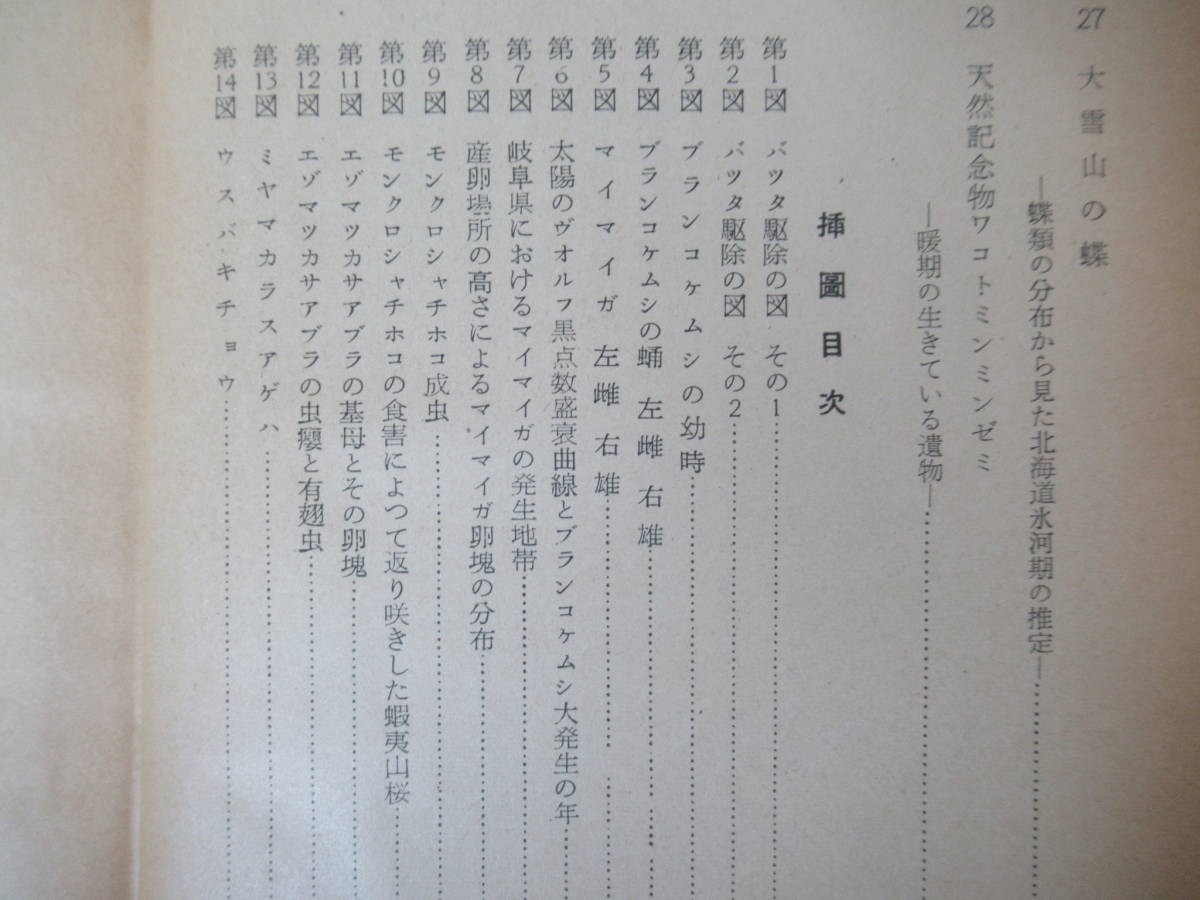 27 大雪山の蝶
―蝶類の分布から見た北海道氷河期の推定―
28 天然記念物ワコトミンミンゼミ
―暖期の生きている遺物―
挿圖目次
第1図 バツタ駆除の図 その1
第2図 バツタ駆除の図 その2
第3図 ブランコケムシの幼時
第4図 ブランコケムシの蛹 左雌右雄
第5図 マイマイガ 左雌 右雄
第6図 太陽のヴオルフ黒点数盛衰曲線とブランコケムシ大発生の年
第7図 岐阜県におけるマイマイガの発生地帯
第8図 産卵場所の高さによるマイマイガ卵塊の分布
第9図 モンクロシャチホコ成虫
第10図 モンクロシャチホコの食害によつて返り咲きした蝦夷山桜
第11図 エゾマツカサアブラの基母とその卵塊
第12図 エゾマツカサアブラの虫癭と有翅虫
第13図 ミヤマカラスアゲハ
第14図 ウスバキチョウ